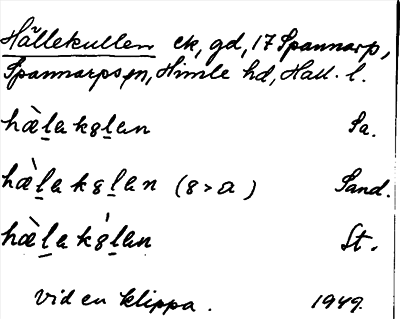 Hällekullen ck, gd, 17 Spannarp,
Spannarps sn, Himle hd, Hall. l.
hæ̀l̠a k8l̠an Sa.
hæ̀l̠a k8l̠an (8>a) Sand.
hæ̀l̠a k8́l̠an St.
vid en klippa. 1949.